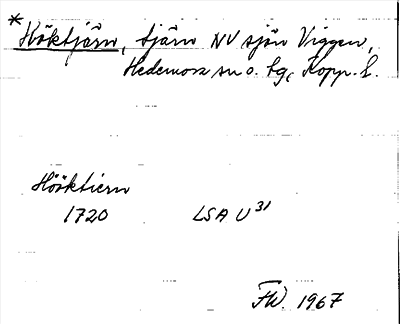 *Höktjärn, tjärn NV sjön Viggen,
Hedemora sn o. tg, Kopp. l.
Hööktiern
1720 LSA U 31
FW. 1967